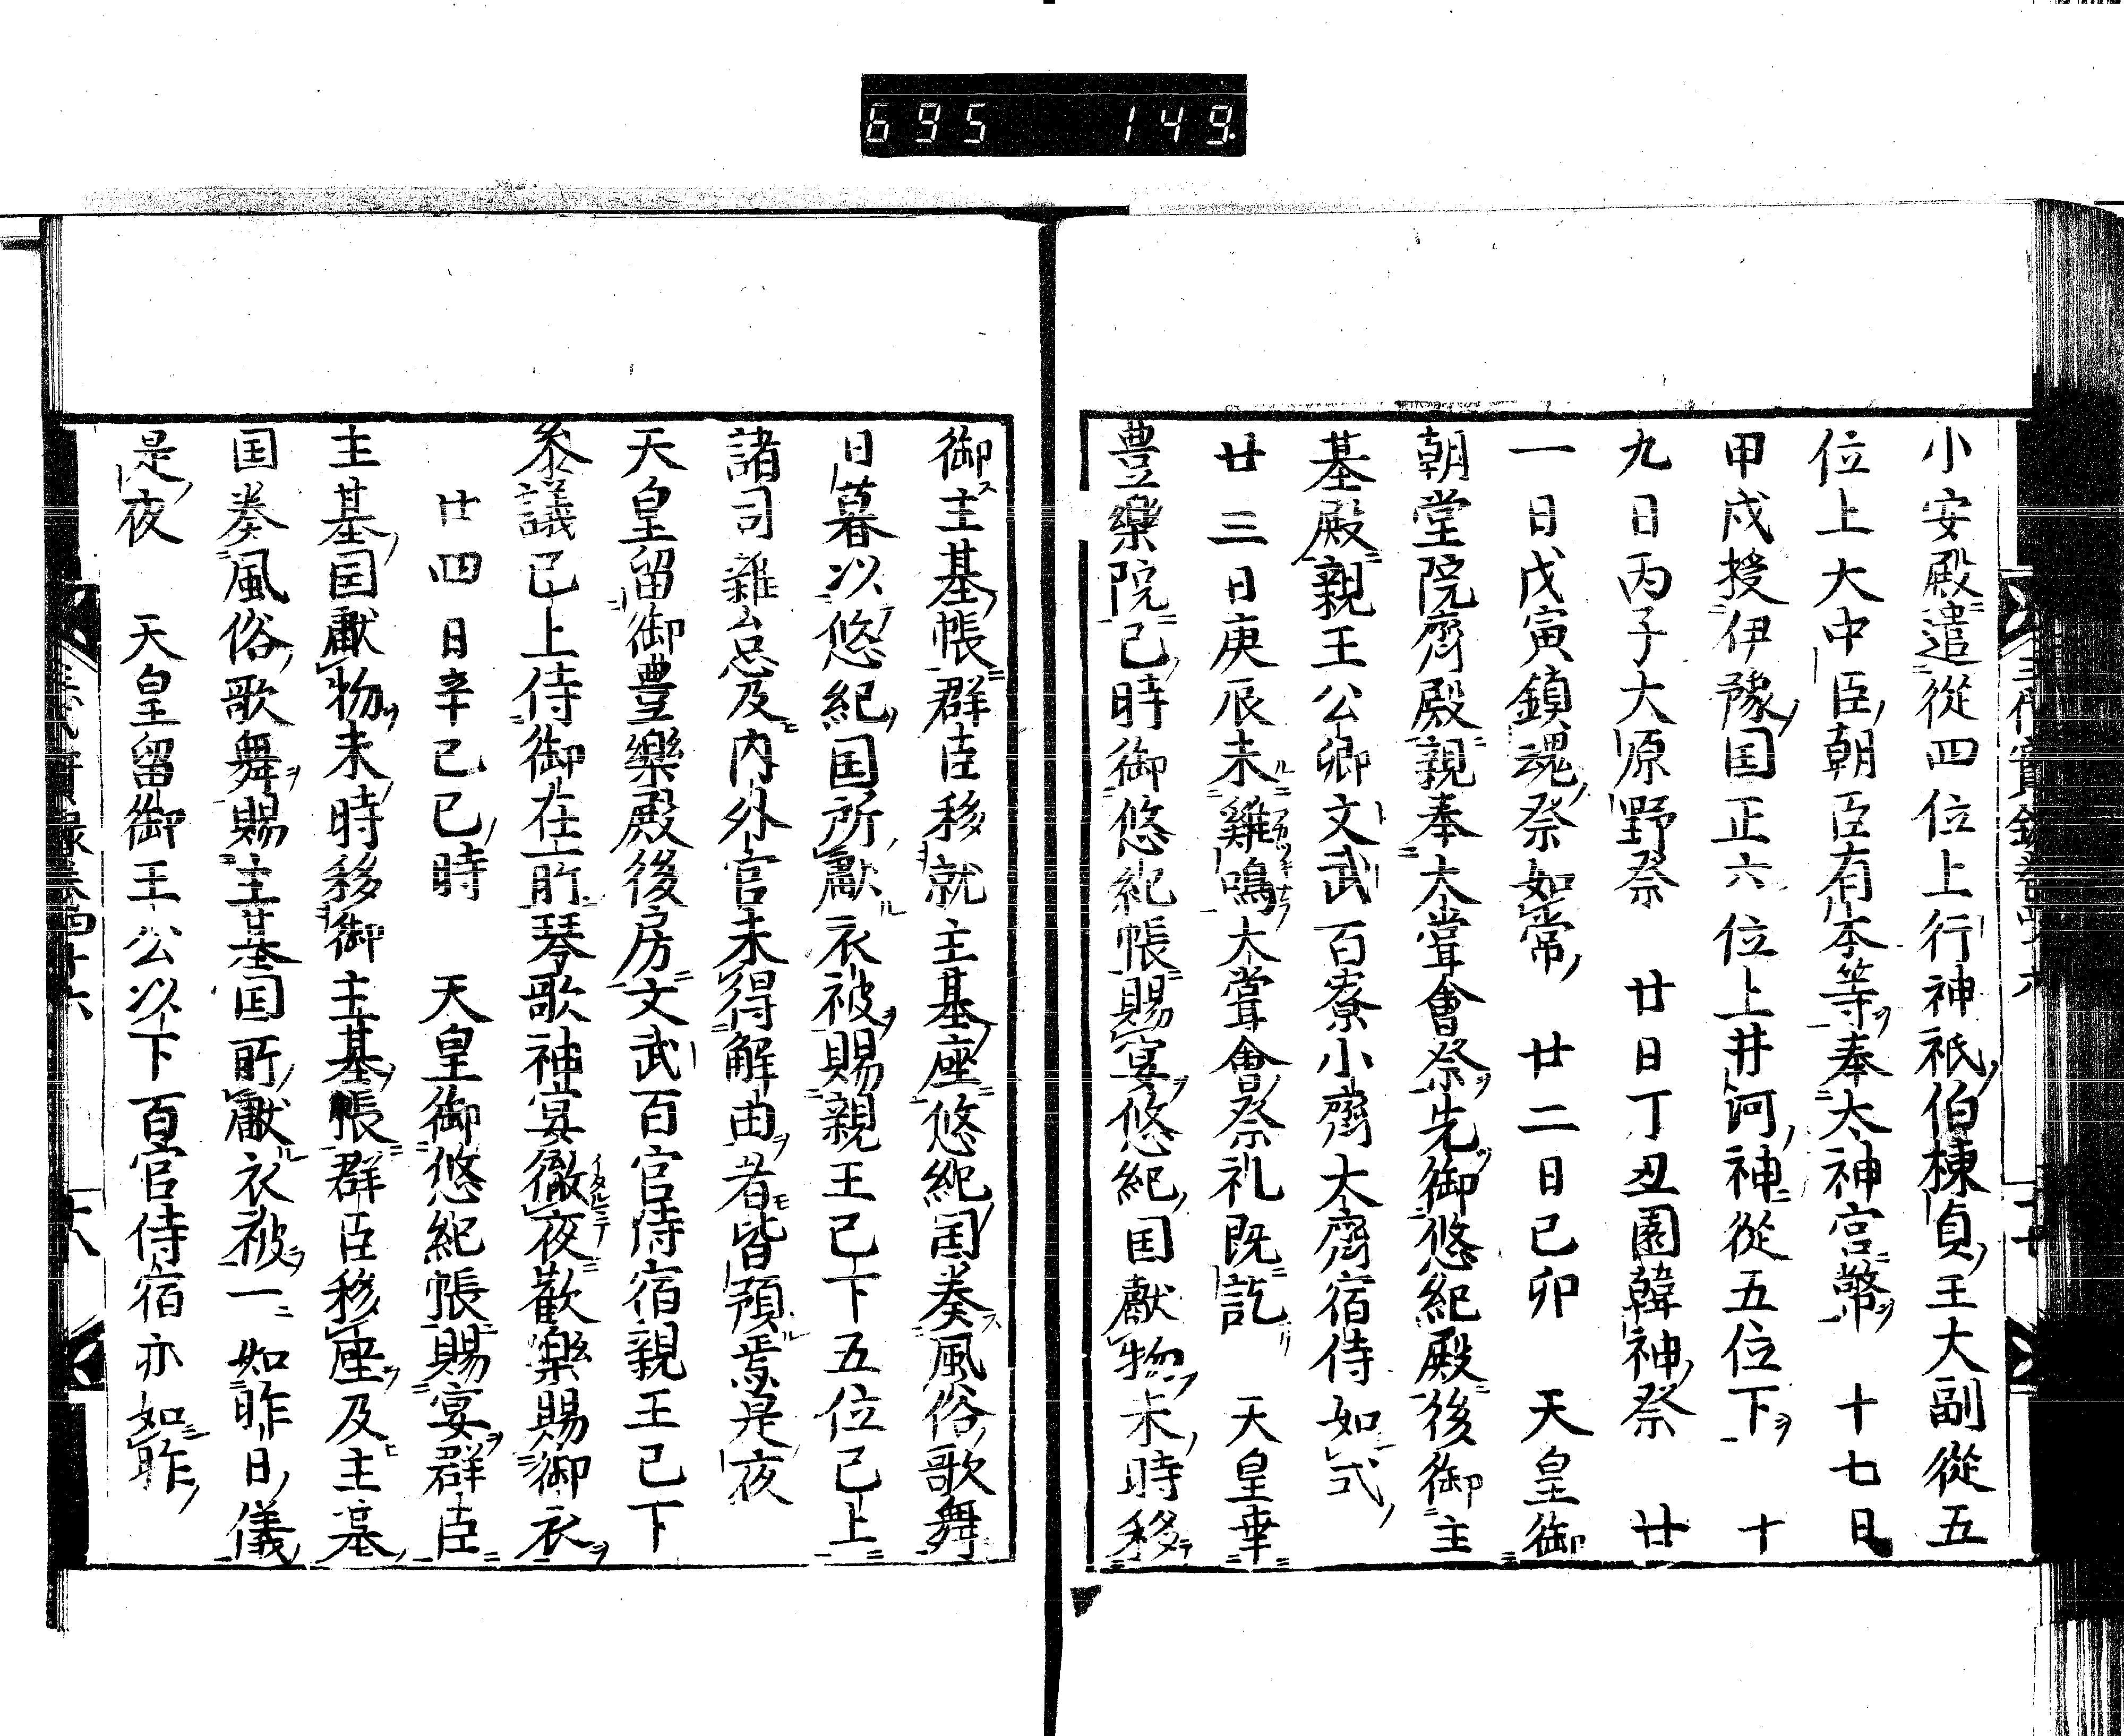 695 149
小安殿遣從四位上行神祇伯棟貞王大副從五
位上大中臣朝臣有本等奉太神宮幣　十七日
甲戌授伊豫国正六位上井河神從五位下　十
九日丙子大原野祭　廿日丁丑園韓神祭　廿
一日戊寅鎮魂祭如常　廿二日己卯　天皇御
朝堂院齊殿親奉大嘗會祭先御悠紀殿後御主
基殿親王公卿文武百寮小齊大齊宿侍如式
廿三日庚辰未雞鳴大嘗會祭礼既訖　天皇幸
豊樂院已時御悠紀帳賜宴悠紀国獻物未時移
御主基帳群臣移就主基座悠紀国奏風俗歌舞
日暮以悠紀国所獻衣被賜親王已下五位已上
諸司雑忩及内外官未得解由者皆預焉是夜
天皇留御豊樂殿後房文武百官侍宿親王已下
参議已上侍御在所琴歌神宴徹夜歡樂賜御衣
廿四日辛巳巳時　天皇御悠紀帳賜宴群臣
主基国獻物未時移御主基帳群臣移座及主基
国奏風俗歌舞賜主基国所獻衣被一如昨日儀
是夜　天皇留御王公以下百官侍宿亦如昨